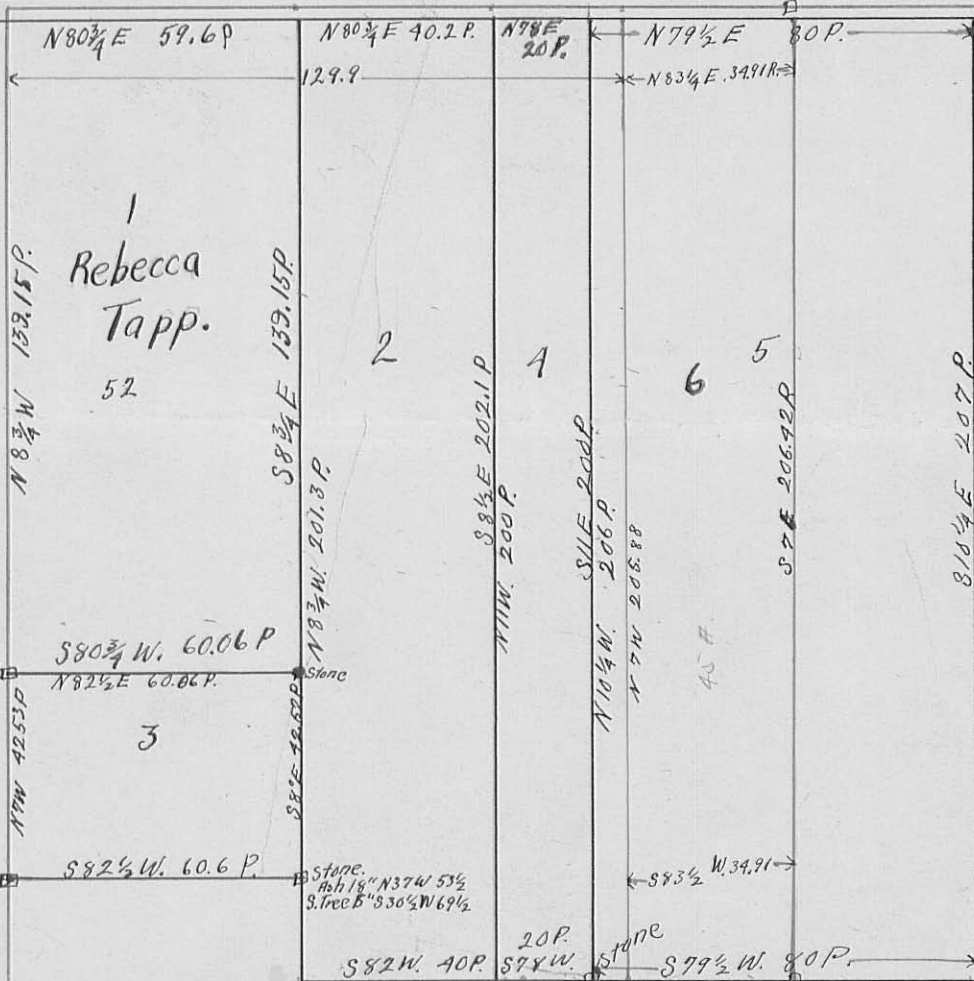 N80¾E 59.6P
N80¾E 40.2P.
N78E
20P.
N79½E 80P.
129.9
N83¼E. 34.91P.
1
Rebecca
Tapp.
52
N8¾W 139.15P.
S8¾E 139.15P.
2
N8¾W. 201.3P.
S8½E 202.1P
4
N11W. 200P.
S11E 200P.
N10¼W. 206P.
N7W 205.88
6
5
45 A
S7E 206.42P
S10¼E 207P.
S80¾W. 60.06P
N82½E 60.06P.
Stone
3
N7W 42.53P
S8°E 42.62P
S82½W. 60.6P.
Stone.
Ash 18" N37W 53½
S.Tree 8" S30½W 69½
S83½W. 34.91
S82W. 40P.
20P.
S78W.
Stone
S79½W. 80P.